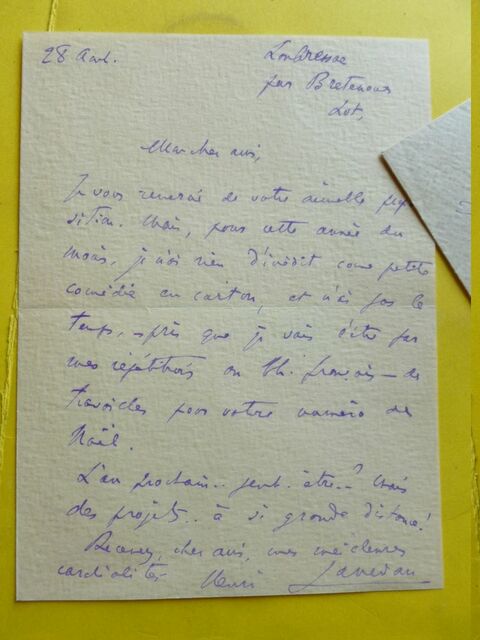 28 Août.
Loubressac
par Bretenoux
Lot,
Mon cher ami,
Je vous remercie de votre aimable propo
sition. Mais, pour cette année du
moins, je n'ai rien d'inédit comme petite
comédie en carton, et n'ai pas le
temps, pris que je vais être par
mes répétitions au Th. français — de
travailler pour votre numéro de
Noël.
L'an prochain.. peut-être..? Mais
des projets.. à si grande distance!
Recevez, cher ami, mes meilleures
cordialités Henri Lavedan